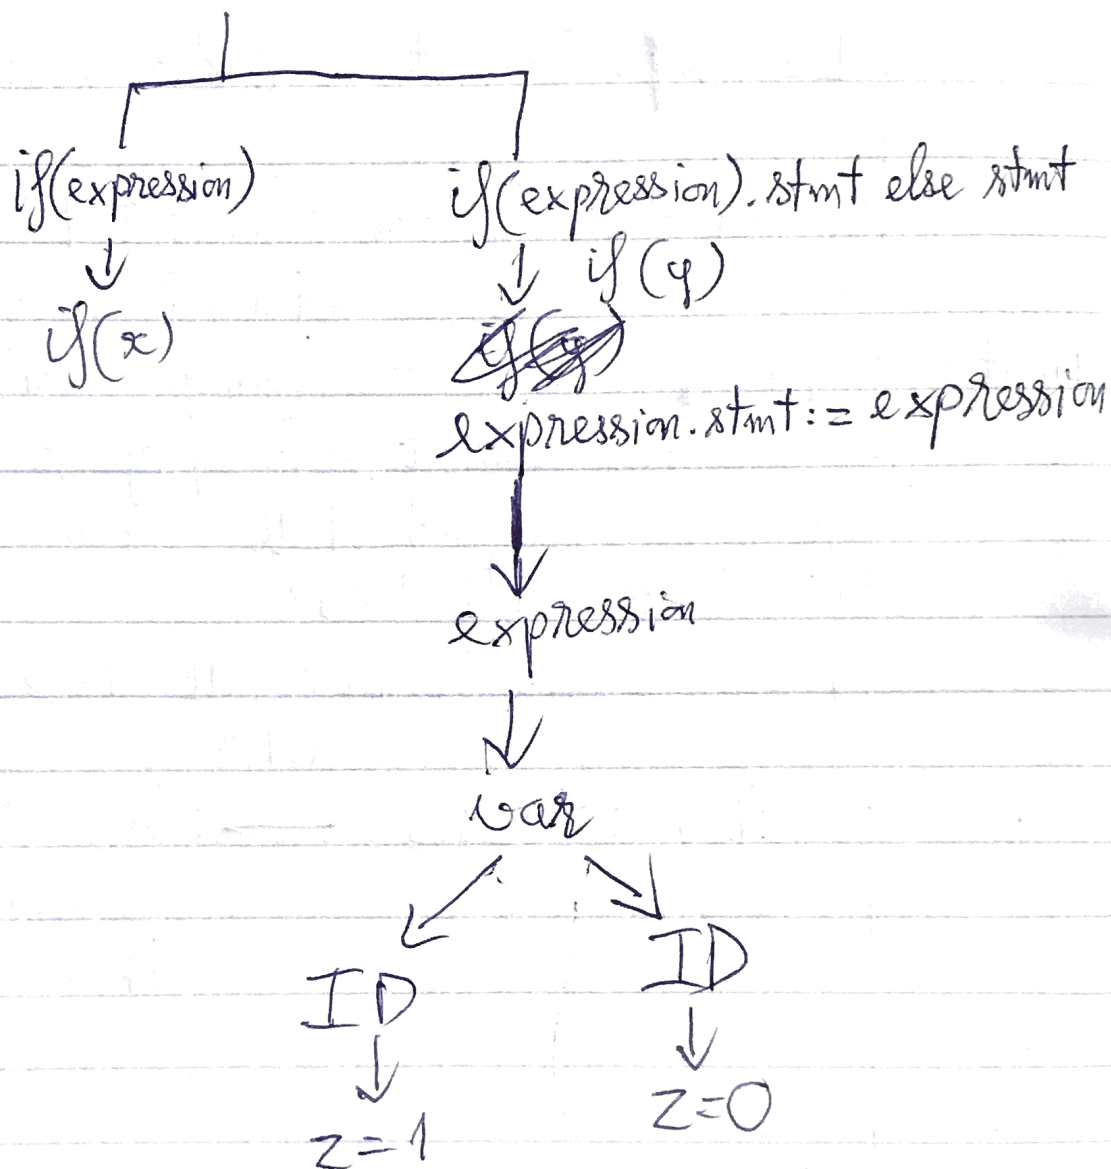 if(expression) if(expression).stmt else stmt
if(y)
if(x)
expression.stmt:= expression
expression
var
ID
ID
z=0
z=1